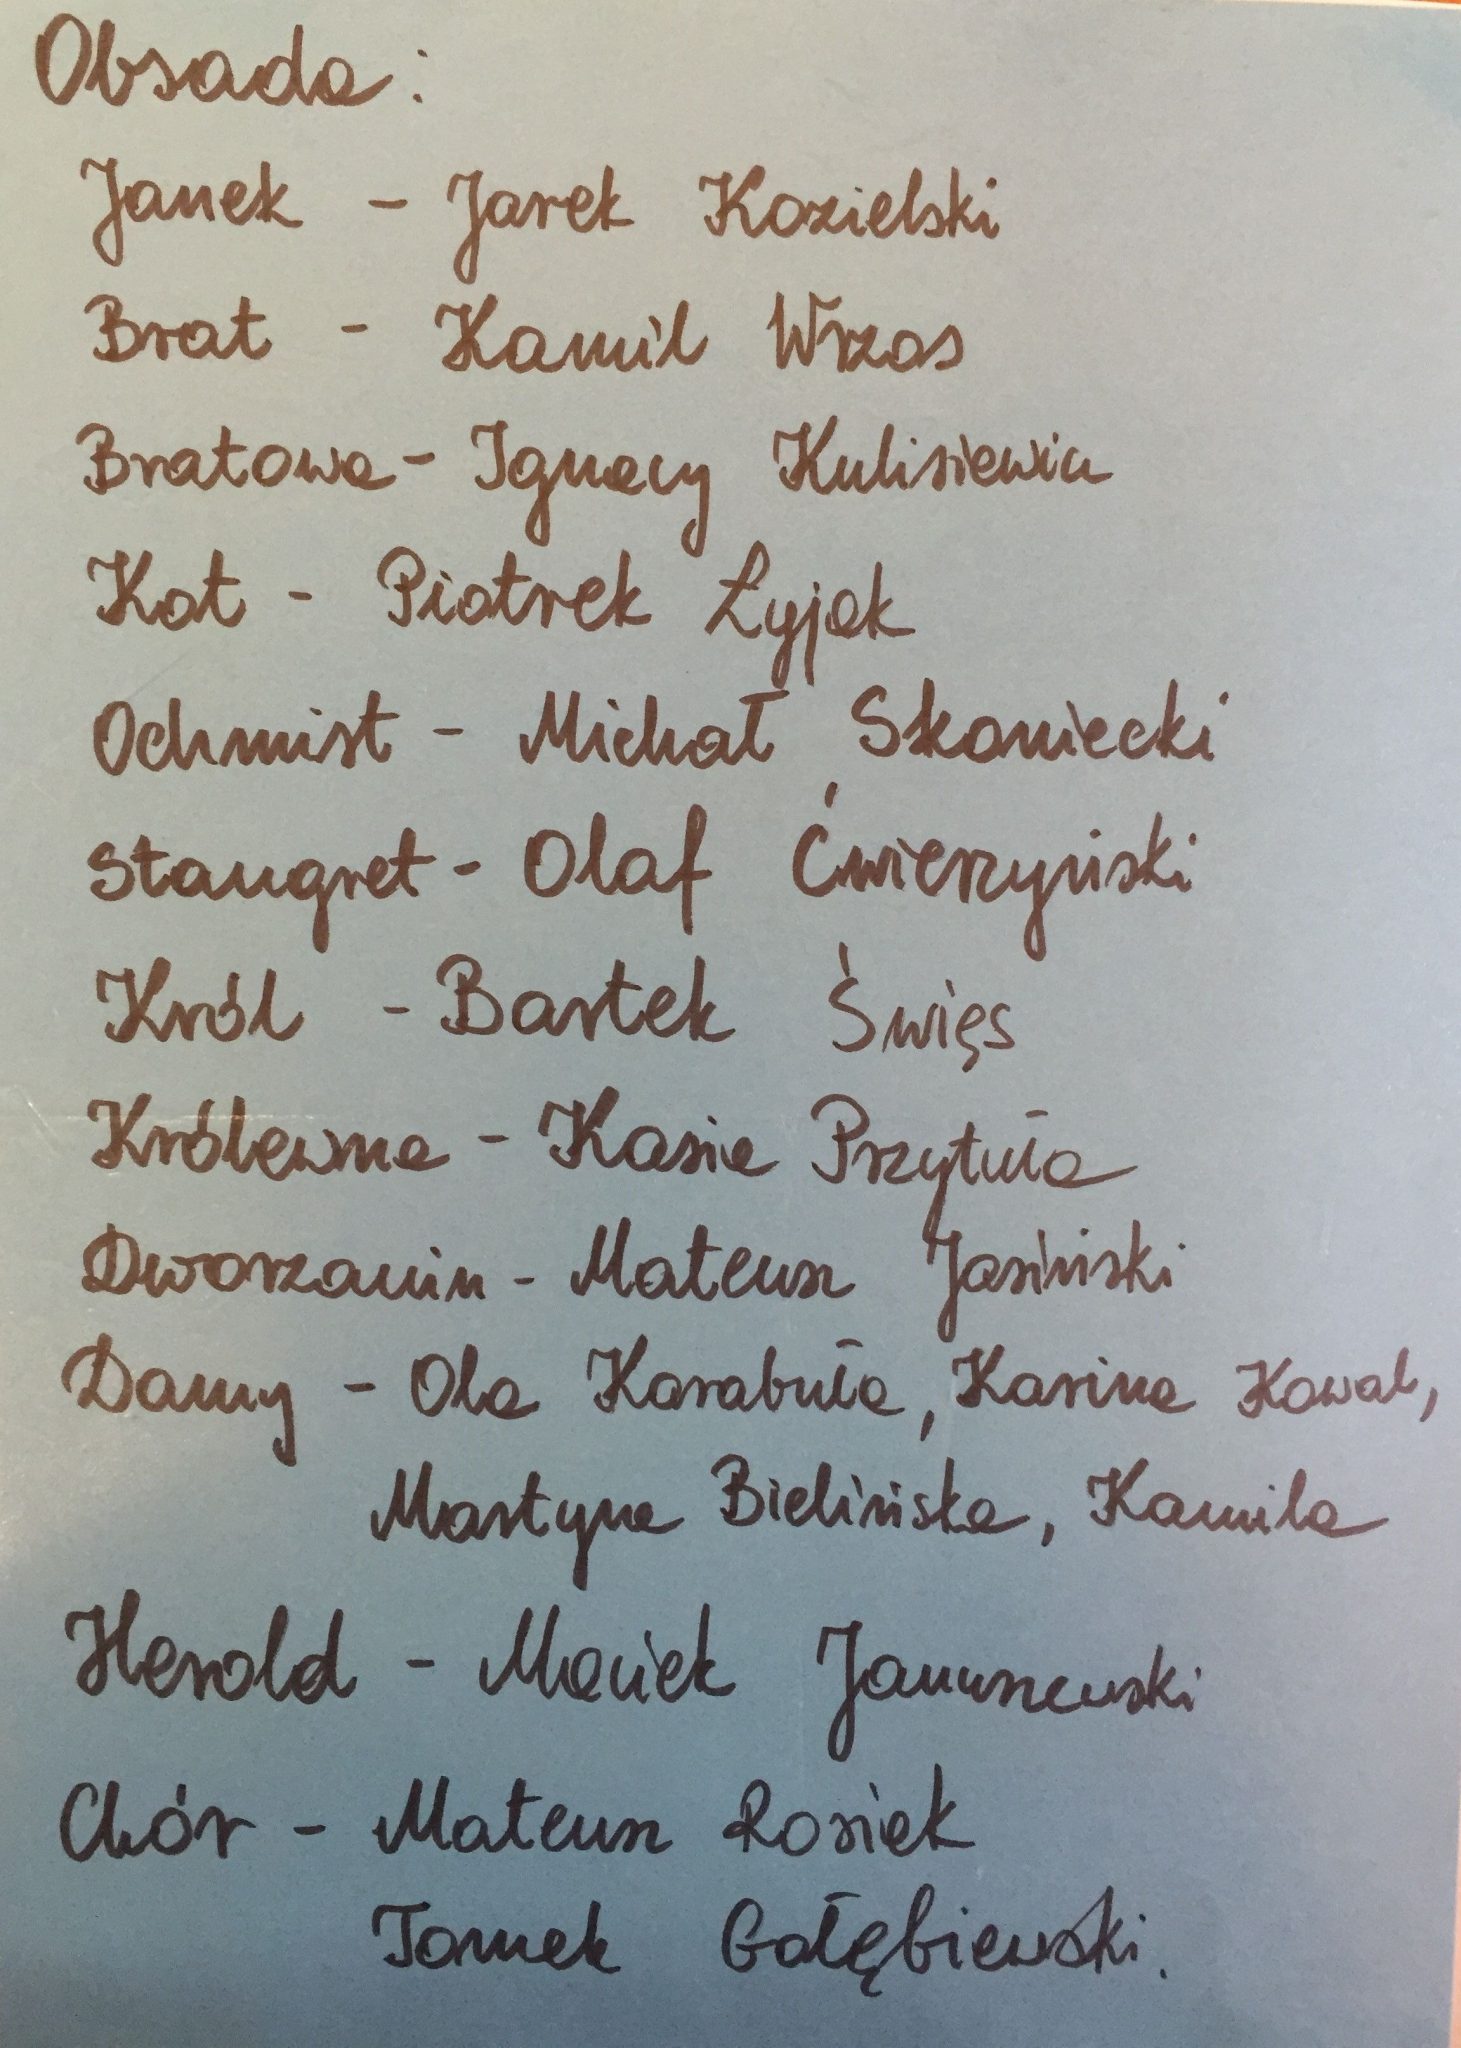 Obsada:
Janek - Jarek Kozielski
Brat - Kamil Wrzos
Bratowa - Ignacy Kulisiewicz
Kat - Piotrek Łyjak
Ochmist - Michał Skoniecki
Stangret - Olaf Ćwierzyński
Król - Bartek Święs
Królewna - Kasia Przytuła
Dworzanin - Mateusz Jasiński
Damy - Ola Karabuła, Karina Kowal,
Martyna Bielińska, Kamila
Herold - Maciek Januszewski
Chór - Mateusz Rosiek
Tomek Gołębiewski.